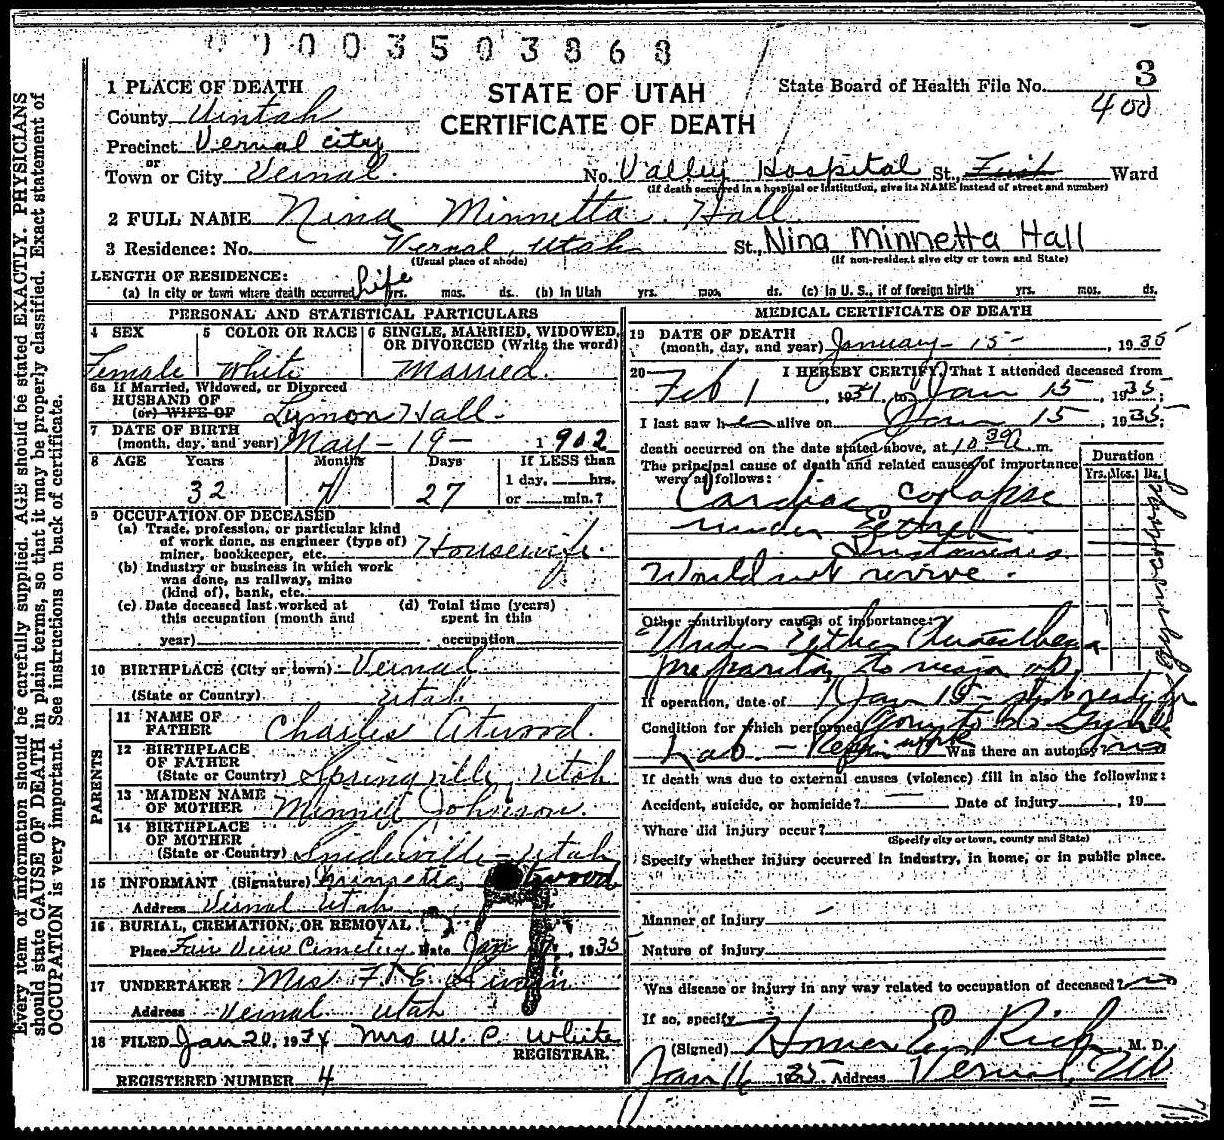 0003503868
3
400
STATE OF UTAH
CERTIFICATE OF DEATH
State Board of Health File No.
1 PLACE OF DEATH
County Uintah
Precinct Vernal city
or
Town or City Vernal. No. Valley Hospital St., First Ward
(If death occurred in a hospital or institution, give its NAME instead of street and number)
2 FULL NAME Nina Minnetta Hall
3 Residence: No. Vernal, Utah St., Nina Minnetta Hall
(Usual place of abode) (If non-resident give city or town and State)
LENGTH OF RESIDENCE:
(a) In city or town where death occurred life yrs. mos. ds. (b) In Utah yrs. mos. ds. (c) In U. S., if of foreign birth yrs. mos. ds.
PERSONAL AND STATISTICAL PARTICULARS
4 SEX 5 COLOR OR RACE 6 SINGLE, MARRIED, WIDOWED,
OR DIVORCED (Write the word)
Female White Married.
6a If Married, Widowed, or Divorced
HUSBAND OF
(or) WIFE OF Lymon Hall.
7 DATE OF BIRTH
(month, day, and year) May - 19 - 1902
8 AGE Years Months Days If LESS than
1 day, hrs.
32 7 27 or min.?
9 OCCUPATION OF DECEASED
(a) Trade, profession, or particular kind
of work done, as engineer (type of)
miner, bookkeeper, etc. Housewife.
(b) Industry or business in which work
was done, as railway, mine
(kind of), bank, etc.
(c) Date deceased last worked at (d) Total time (years)
this occupation (month and spent in this
year) occupation
10 BIRTHPLACE (City or town) Vernal
(State or Country) Utah
PARENTS
11 NAME OF
FATHER Charles Atwood.
12 BIRTHPLACE
OF FATHER
(State or Country) Springville, Utah
13 MAIDEN NAME
OF MOTHER Minnet Johnson.
14 BIRTHPLACE
OF MOTHER
(State or Country) Sniderville - Utah
15 INFORMANT (Signature) Minnetta Atwood
Address Vernal Utah
16 BURIAL, CREMATION, OR REMOVAL
Place Fair View Cemetery Date Jan 1935
17 UNDERTAKER Mrs F. E. Swain
Address Vernal Utah
18 FILED Jan 20, 1934 Mrs W. C. White
REGISTRAR.
REGISTERED NUMBER 4
MEDICAL CERTIFICATE OF DEATH
19 DATE OF DEATH
(month, day, and year) January - 15 - , 1935
20 I HEREBY CERTIFY, That I attended deceased from
Feb 1, 1934, to Jan 15, 1935;
I last saw her alive on Jan 15, 1935;
death occurred on the date stated above, at 10 30 m.
The principal cause of death and related causes of importance
were as follows:
Duration
Yrs. Mos. Ds.
Cardiac colapse
under Ether
Instaneous
Would not revive.
Other contributory causes of importance:
Under Ether
preparing to
If operation, date of Jan 15 - ready for
Condition for which performed
Lab. - Repair work Was there an autopsy? no
If death was due to external causes (violence) fill in also the following:
Accident, suicide, or homicide? Date of injury , 19
Where did injury occur?
(Specify city or town, county and State)
Specify whether injury occurred in industry, in home, or in public place.
Manner of Injury
Nature of Injury
Was disease or injury in any way related to occupation of deceased? no
If so, specify
(Signed) Homer E. Rich M. D.
Jan 16 1935 Address Vernal, Ut
Every item of information should be carefully supplied. AGE should be stated EXACTLY. PHYSICIANS
should state CAUSE OF DEATH in plain terms, so that it may be properly classified. Exact statement of
OCCUPATION is very important. See instructions on back of certificate.